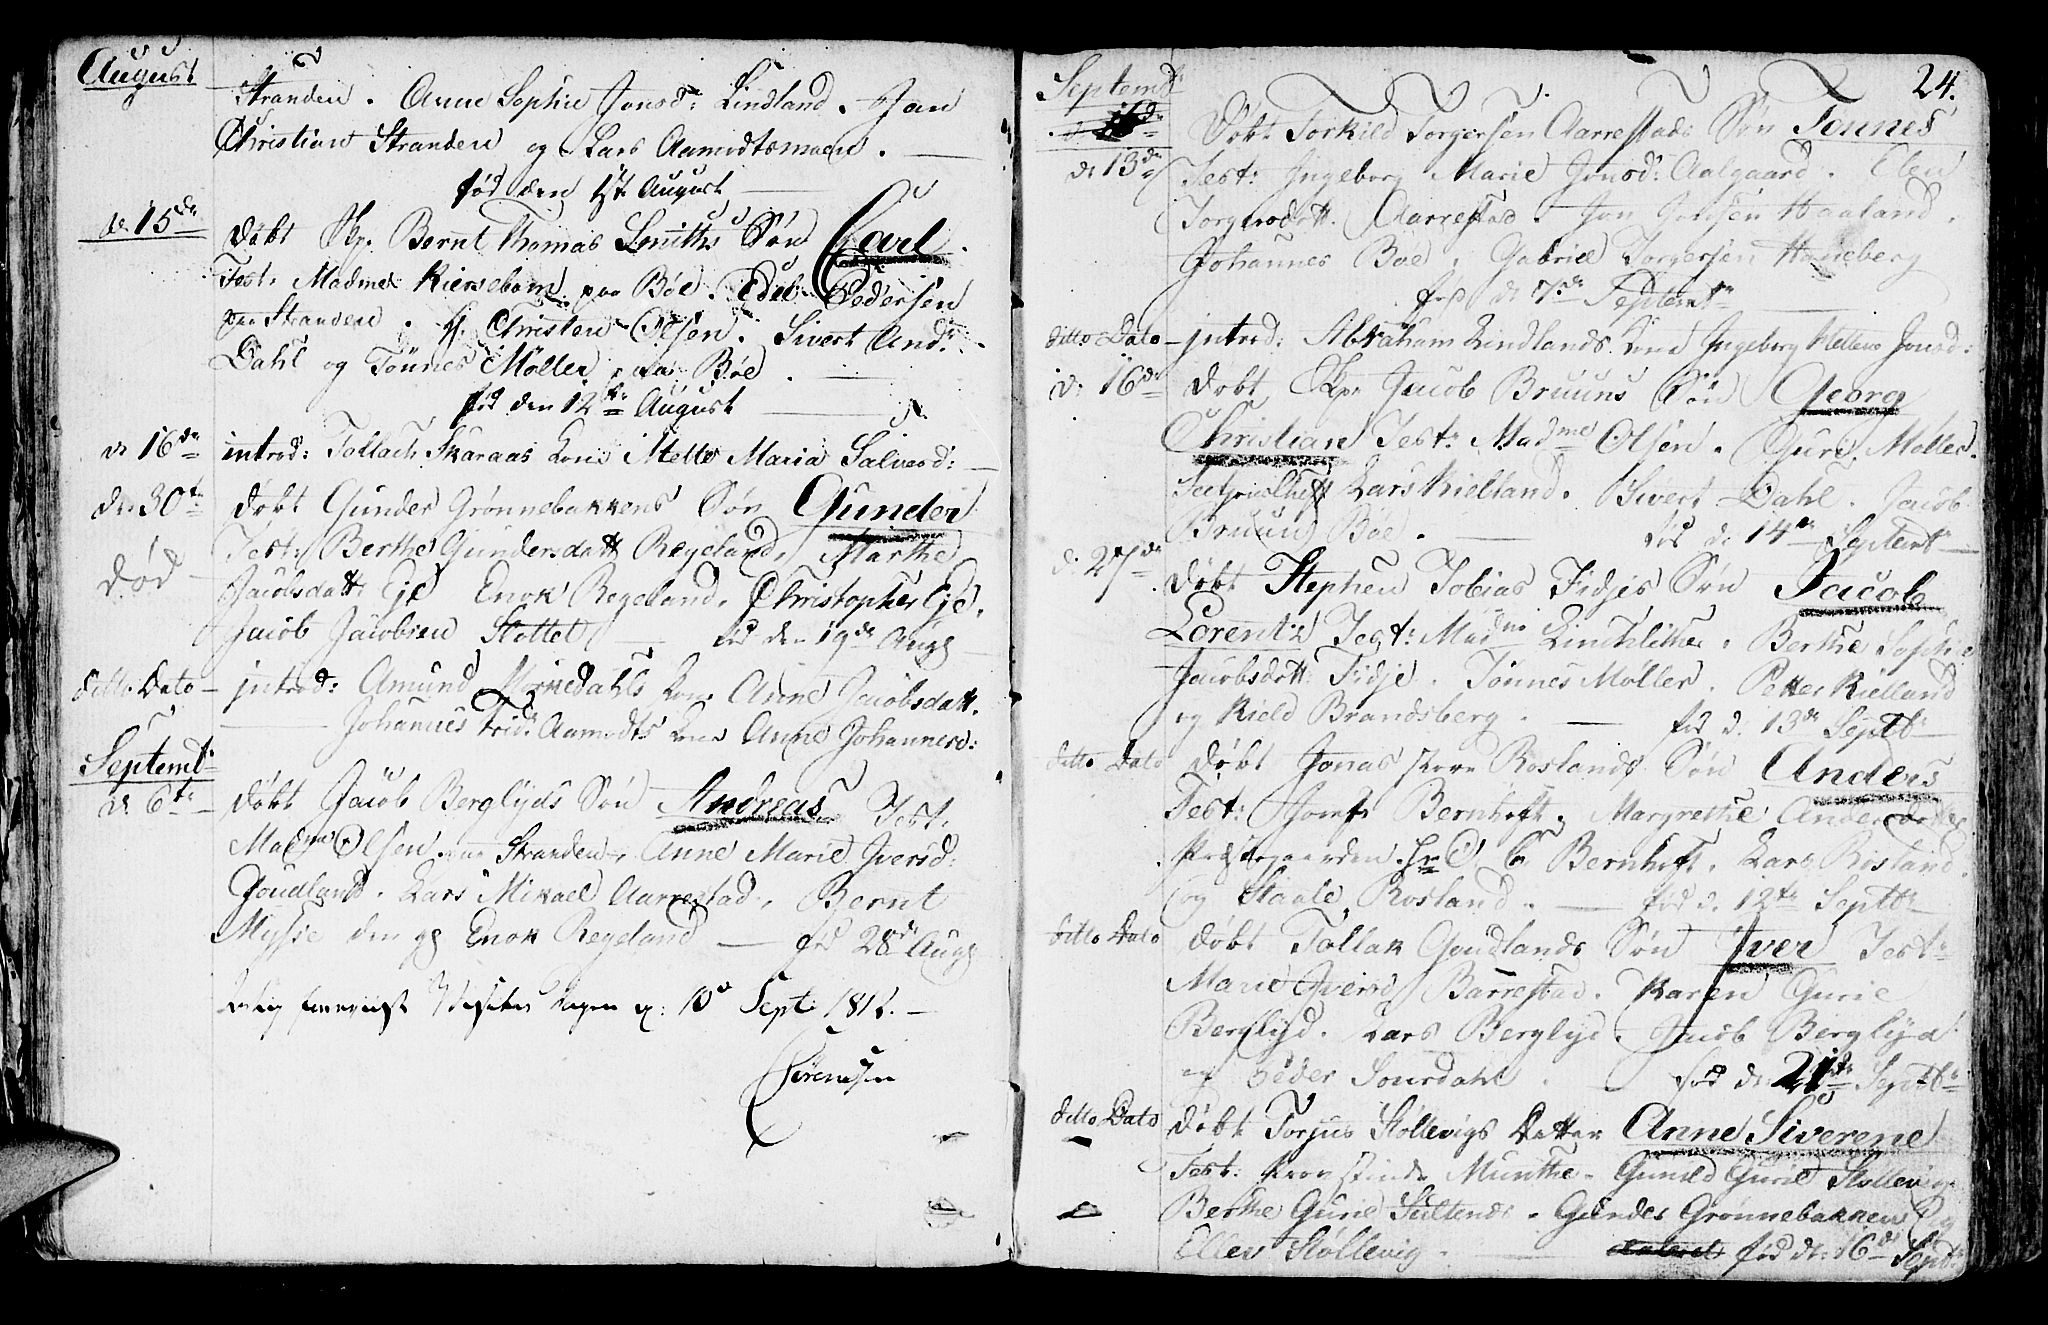 August
Stranden. Anne Sophie Jonsd: Lindland. Jan
Christian Stranden og Lars Aamodtsmoen.
fød den 1ste August
d: 15de døbt Skp. Bernt Thomas Smiths Søn Carl.
Test: Madme Kiersebom paa Böe. Edel Pedersen
paa Stranden. H. Christen Olsen. Sivert And:
Dahl og Tönnes Möller paa Böe.
fød den 12te August
d: 16de introd: Tollach Skaraas Kone Mette Maria Salvesd:
d: 30te døbt Gunder Grönnebakkens Søn Gunder
Test: Berthe Gundersdatt Regeland, Marthe
død Jacobsdatt Eje Enok Regeland. Christopher Eje.
Jacob Jacobsen Slottet fød den 19de Aug
ditto Dato introd: Amund Kone Anne Jacobsdatt.
Johannes Aamodts Kone Anne Johannesd:
Septemb:
d: 6te døbt Jacob Berglyds Søn Andreas Test:
Madme Olsen paa Stranden, Anne Marie Iversd:
Goudland. Lars Mikael Aarrestad, Bernt
Mysse den Enok Regeland fød 28de Aug
10de Sept 181
Sörensen
24.
Septemb:
d: 13de Døbt Torkild Torgersen Aarrestads Søn Tønnes
Test: Ingeborg Marie Jonsd: Aalgaard. Elen
Torgersdatt. Aarrestad. Jon Jonsen Haaland.
Johannes Böe. Gabriel Torgersen Haneberg
fød d: 7de Septembr
ditto Dato introd: Abraham Lindlands Kone Ingeborg Helene Jonsd:
d: 16de Døbt Skp. Jacob Bruuns Søn Georg
Christian Test: Madme Olsen. Guri Möller.
Lars Kielland. Sivert Dahl. Jacob
Bruun Böe. fød d: 14de Septemb
d: 27de døbt Stephen Tobias Fidjes Søn Jacob
Lorentz Test: Madme Berthe Sophie
Jacobsdatt: Fidje. Tönnes Möller. Petter Kielland
og Kield Brandsberg. fød d. 13de Septb
ditto Dato døbt Jonas Store Roslands Søn Anders
Test: Bernhoft, Margrethe Andersdatter
Præstegaarden. Hr C. Bernhoft. Lars Rosland.
og Staale Rosland. fød d. 12te Septb
ditto Dato døbt Tallak Goudlands Søn Iver Test:
Marie Iversd Barrestad. Karen Gurie
Berglyd. Lars Berglyd. Jacob Berglyd
og Peder fød d: 21de Septb
ditto Dato døbt Torjus Støllevigs Datter Anne Siverene
Test: Munthe. Guneld Gurie Støllevig.
Berthe Gurie Gunder Grønnebakken og
Ellev Støllevig. fød d: 16de Septb